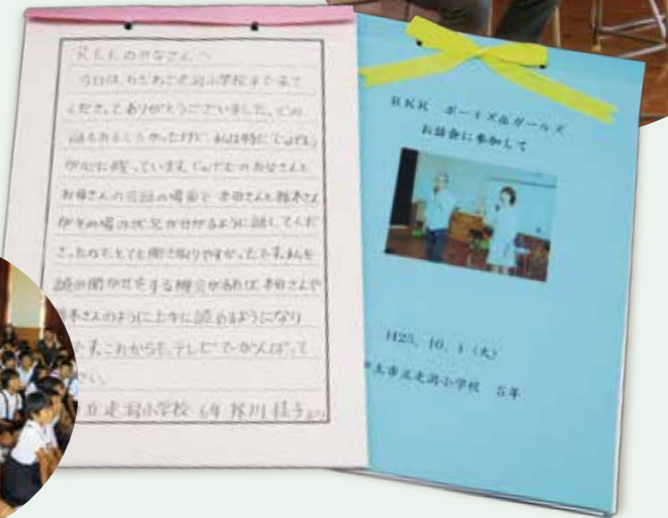 RKKのみなさんへ
今日は、わざわざ走潟小学校まで来て
くださってありがとうございました。どの
話もおもしろかったけど、私は特に
が心に残っています。のお父さんと
お母さんの会話の場面で本田さんと
がその場の状況が分かるように話してくだ
さったので、とても聞き取りやすかったです。私も
読み聞かせをする機会があれば、本田さんや
さんのように上手に読めるようになり
です。これからも、テレビでがんばって
さい。
立走潟小学校 6年
RKK ボーイズ&ガールズ
お話会に参加して
H25. 10. 1 (火)
土市立走潟小学校 5年